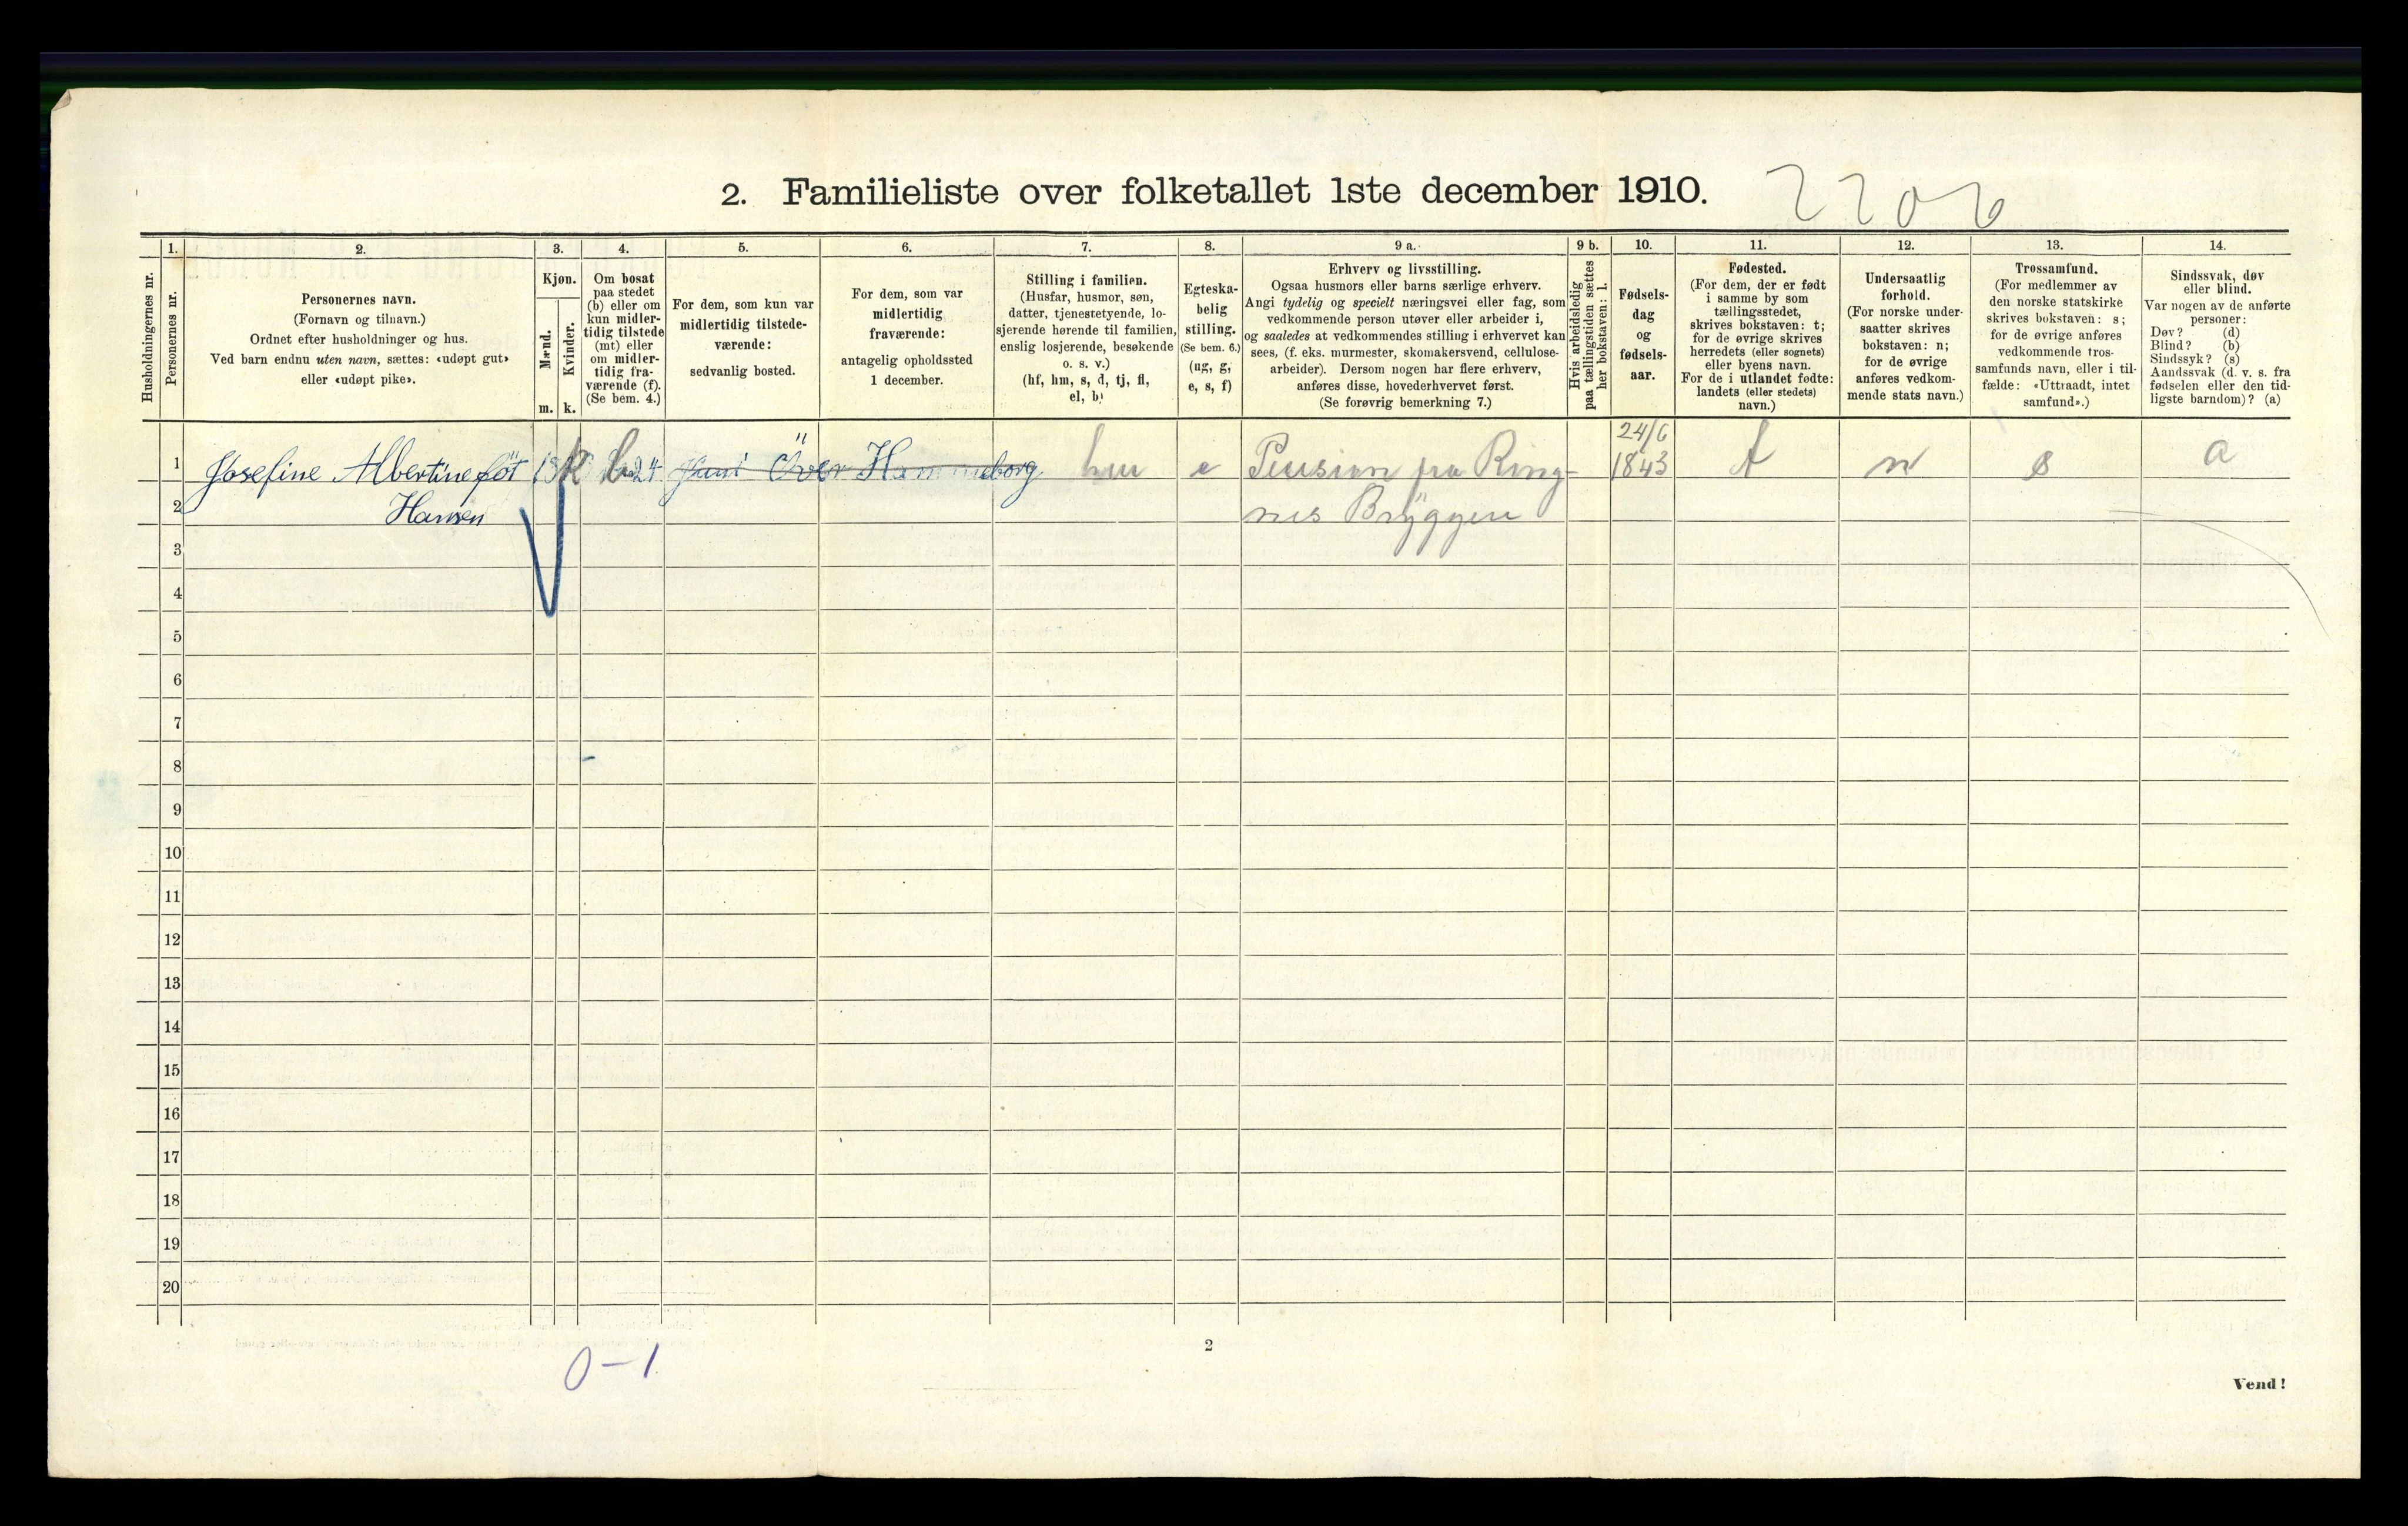 2. Familieliste over folketallet 1ste december 1910.
2206
1.
2.
3.
4.
5.
6.
7.
8.
9 a.
9 b.
10.
11.
12.
13.
14.
Husholdningernes nr.
Personernes nr.
Personernes navn.
(Fornavn og tilnavn.)
Ordnet efter husholdninger og hus.
Ved barn endnu uten navn, sættes: «udøpt gut»
eller «udøpt pike».
Kjøn.
Mænd.
Kvinder.
m. k.
Om bosat
paa stedet
(b) eller om
kun midler-
tidig tilstede
(mt) eller
om midler-
tidig fra-
værende (f).
(Se bem. 4.)
For dem, som kun var
midlertidig tilstede-
værende:
sedvanlig bosted.
For dem, som var
midlertidig
fraværende:
antagelig opholdssted
1 december.
Stilling i familien.
(Husfar, husmor, søn,
datter, tjenestetyende, lo-
sjerende hørende til familien,
enslig losjerende, besøkende
o. s. v.)
(hf, hm, s, d, tj, fl,
el, b)
Egteska-
belig
stilling.
(Se bem. 6.)
(ug, g,
e, s, f)
Erhverv og livsstilling.
Ogsaa husmors eller barns særlige erhverv.
Angi tydelig og specielt næringsvei eller fag, som
vedkommende person utøver eller arbeider i,
og saaledes at vedkommendes stilling i erhvervet kan
sees, (f. eks. murmester, skomakersvend, cellulose-
arbeider). Dersom nogen har flere erhverv,
anføres disse, hovederhvervet først.
(Se forøvrig bemerkning 7.)
Hvis arbeidsledig
paa tællingstiden sættes
her bokstaven: l.
Fødsels-
dag
og
fødsels-
aar.
Fødested.
(For dem, der er født
i samme by som
tællingsstedet,
skrives bokstaven: t;
for de øvrige skrives
herredets (eller sognets)
eller byens navn.
For de i utlandet fødte:
landets (eller stedets)
navn.)
Undersaatlig
forhold.
(For norske under-
saatter skrives
bokstaven: n;
for de øvrige
anføres vedkom-
mende stats navn.)
Trossamfund.
(For medlemmer av
den norske statskirke
skrives bokstaven: s;
for de øvrige anføres
vedkommende tros-
samfunds navn, eller i til-
fælde: «Uttraadt, intet
samfund».)
Sindssvak, døv
eller blind.
Var nogen av de anførte
personer:
Døv? (d)
Blind? (b)
Sindssyk? (s)
Aandssvak (d. v. s. fra
fødselen eller den tid-
ligste barndom)? (a)
24/6
1 Josefine Albertine föt k b 24 Juni Över Hammeborg hm e Pension fra Ring- 1843 t n s a
2 Hansen nes Bryggeri
3
4
5
6
7
8
9
10
11
12
13
14
15
16
17
18
19
20
0-1
2
Vend!